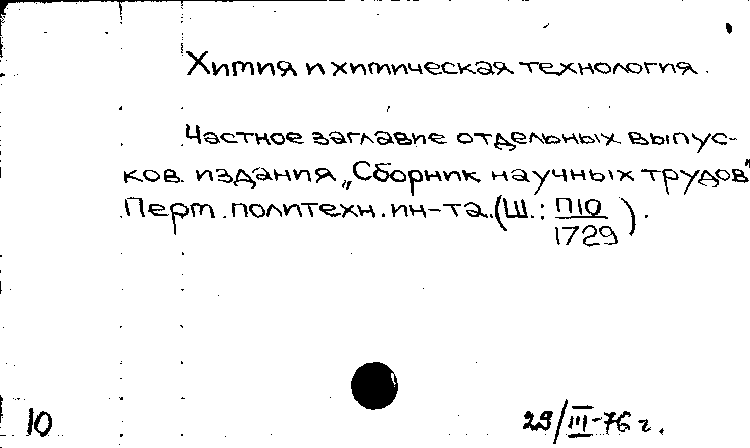 Химия и химическая технология.
Частное заглавие отдельных выпус-
ков издания „Сборник научных трудов"
Перм. политехн. ин-та. (Ш.: П10/1729).
10
29/III-76 г.